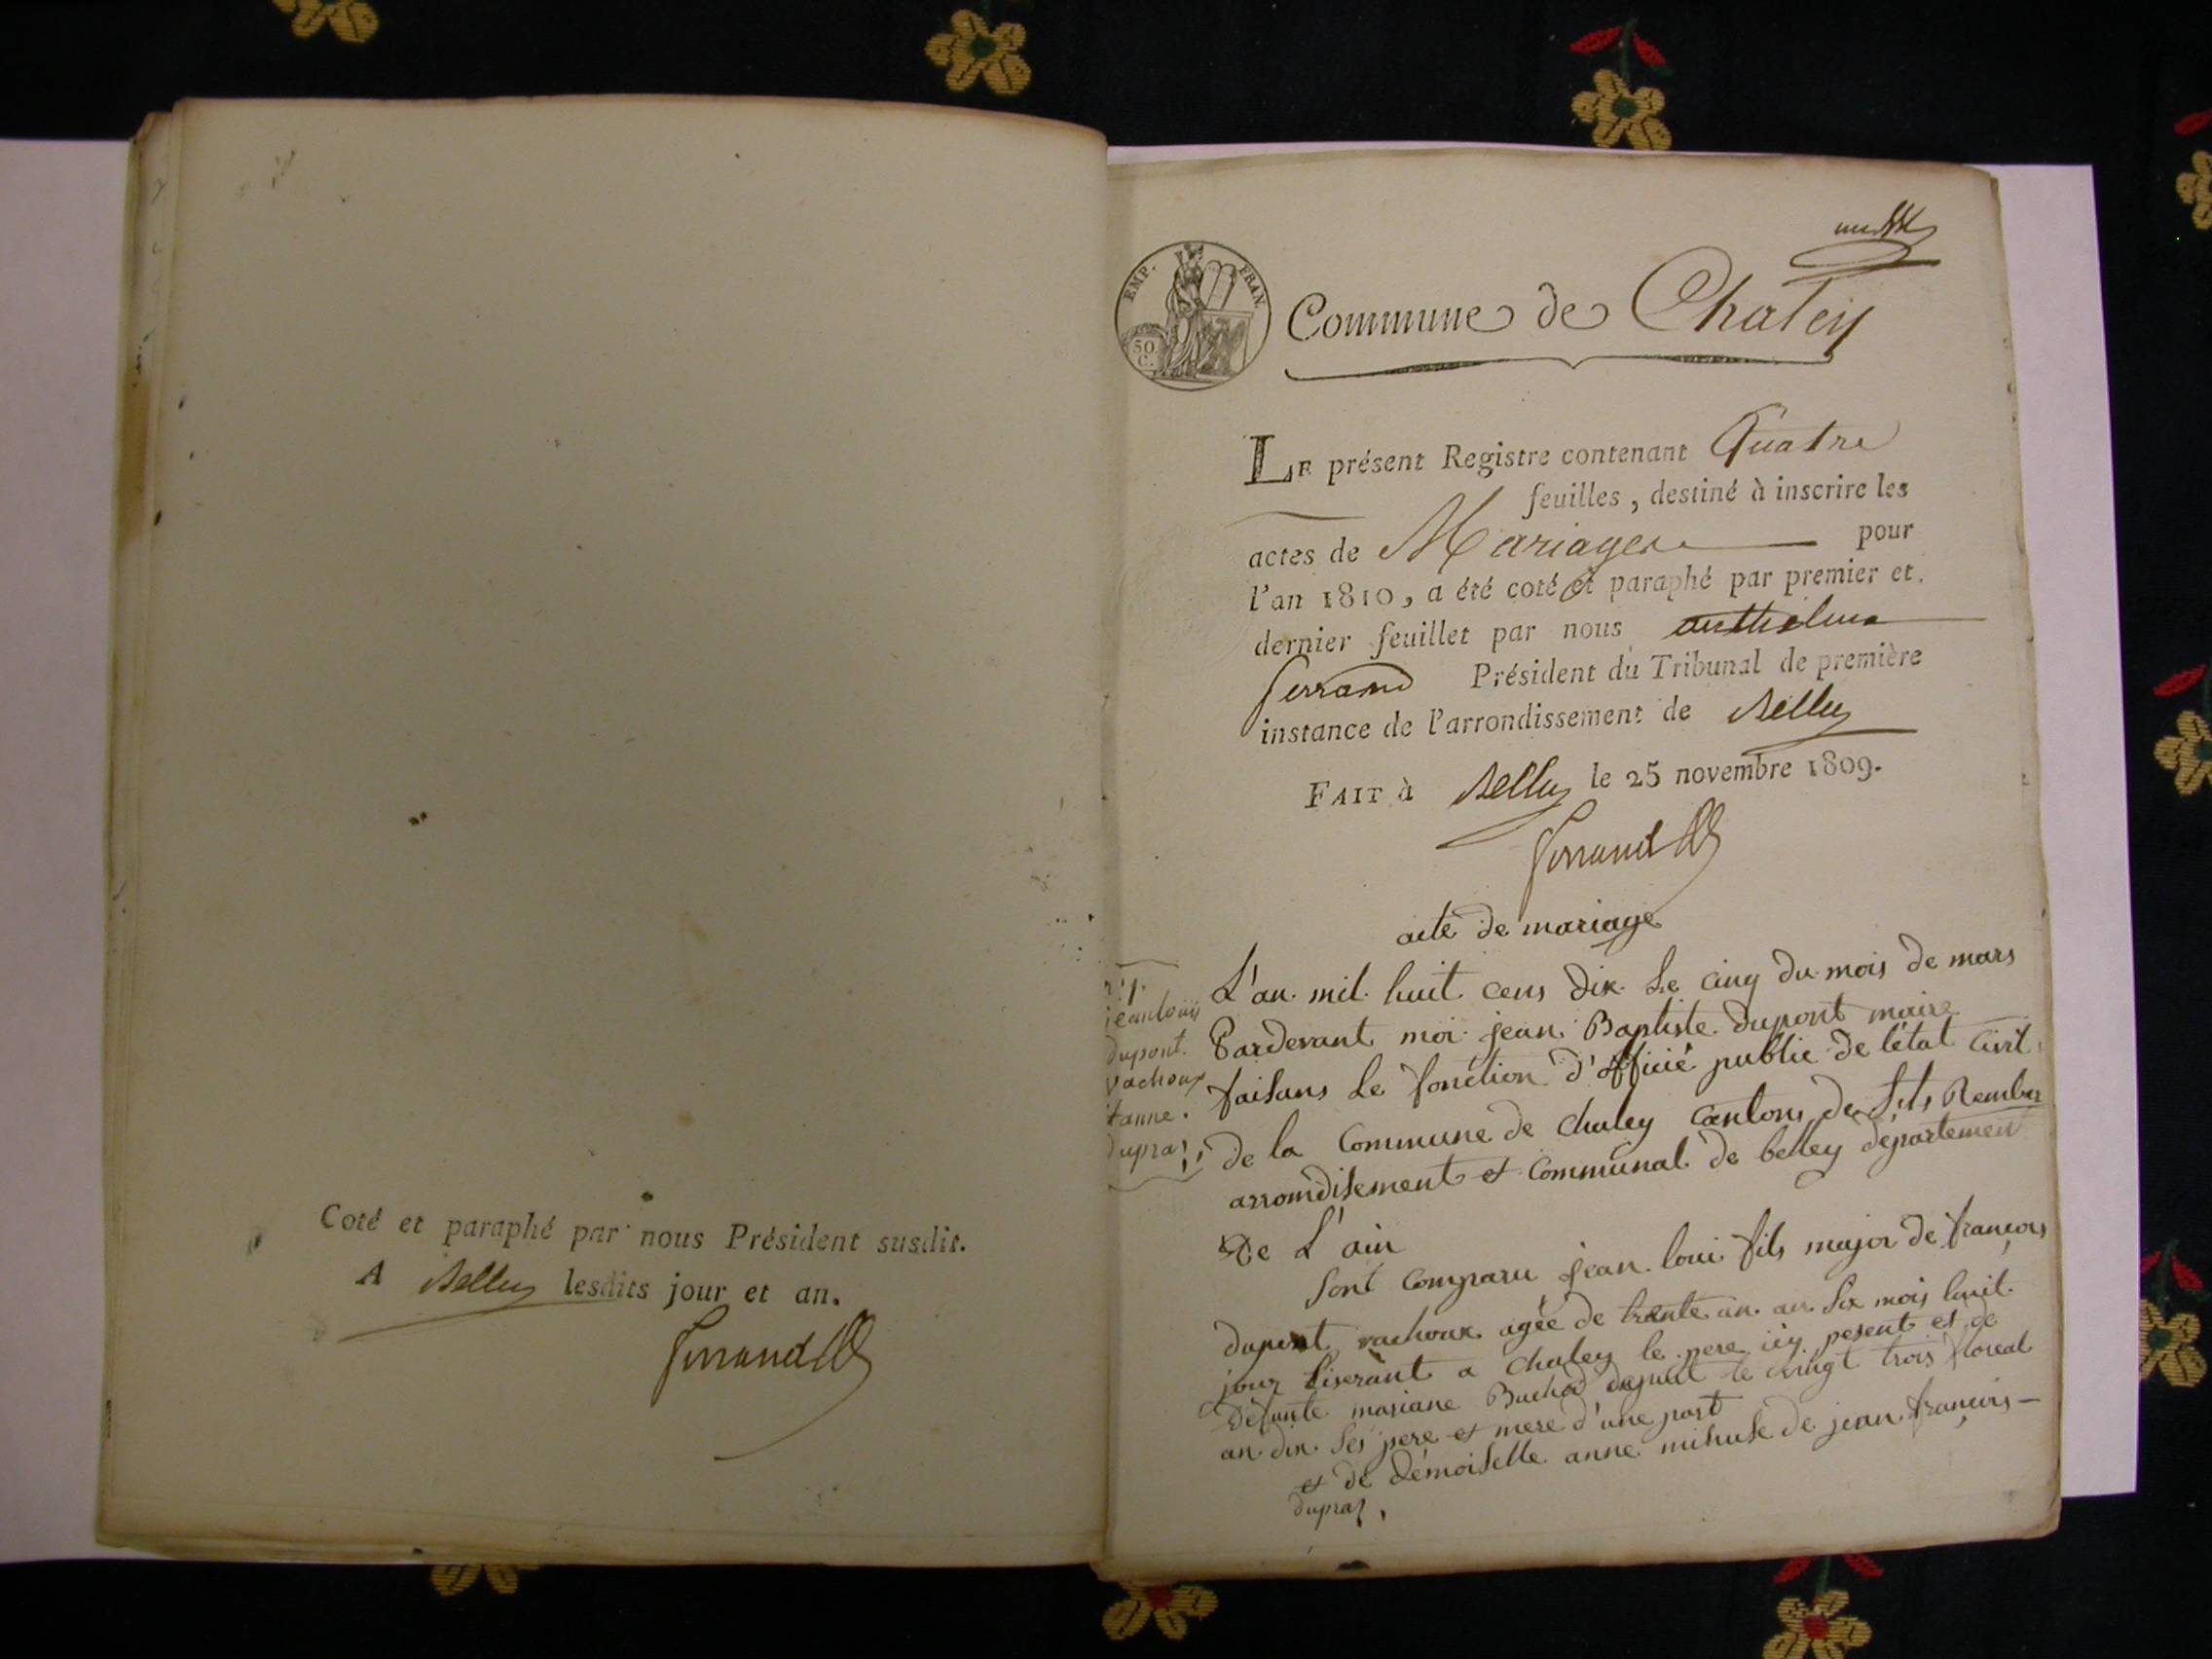 Coté et paraphé par nous Président susdit.
A Belley lesdits jour et an.
Ferrand
EMP. FRAN.
50 C.
Commune de Chaley
LE présent Registre contenant Quatre
feuilles, destiné à inscrire les
actes de Mariages pour
l'an 1810, a été coté et paraphé par premier et
dernier feuillet par nous anthelme
ferrand Président du Tribunal de première
instance de l'arrondissement de Belley
FAIT à Belley le 25 novembre 1809.
Ferrand
acte de mariage
jeanlouis
dupont.
vachoux
anne.
dupraz,
L'an mil huit cens dix Le cinq du mois de mars
Pardevant moi jean Baptiste dupont maire
faisans Le fonction d'Officié public de l'état Civil
de la Commune de Chaley Canton de St Rember
arrondisement et Communal de belley departement
De L'ain
Sont Comparu jean loui fils major de françois
dupont vachoux agée de trente un an six mois huit
jour a Chaley le pere icy pesent et de
Défunte mariane le vingt trois floreal
an dix Ses pere et mere d'une part
et de démoiselle anne de jean françois
dupraz,